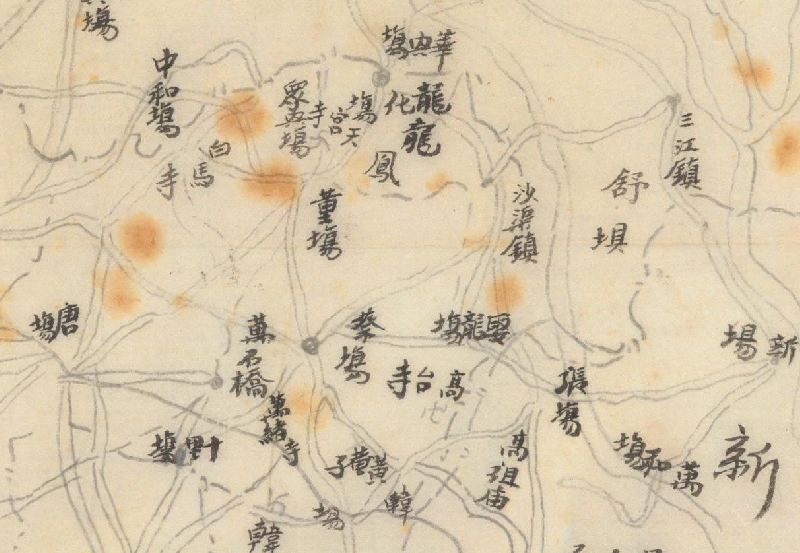 場
華興場
中和場
龍化
龍
鳳
天宮寺
場
白馬寺
三江鎮
舒
垻
沙渠鎮
董場
唐場
萬石橋
蔡場
高台寺
新場
張場
新
萬和場
高祖庙
萬緣寺
野
黃營子
韓
場
韓